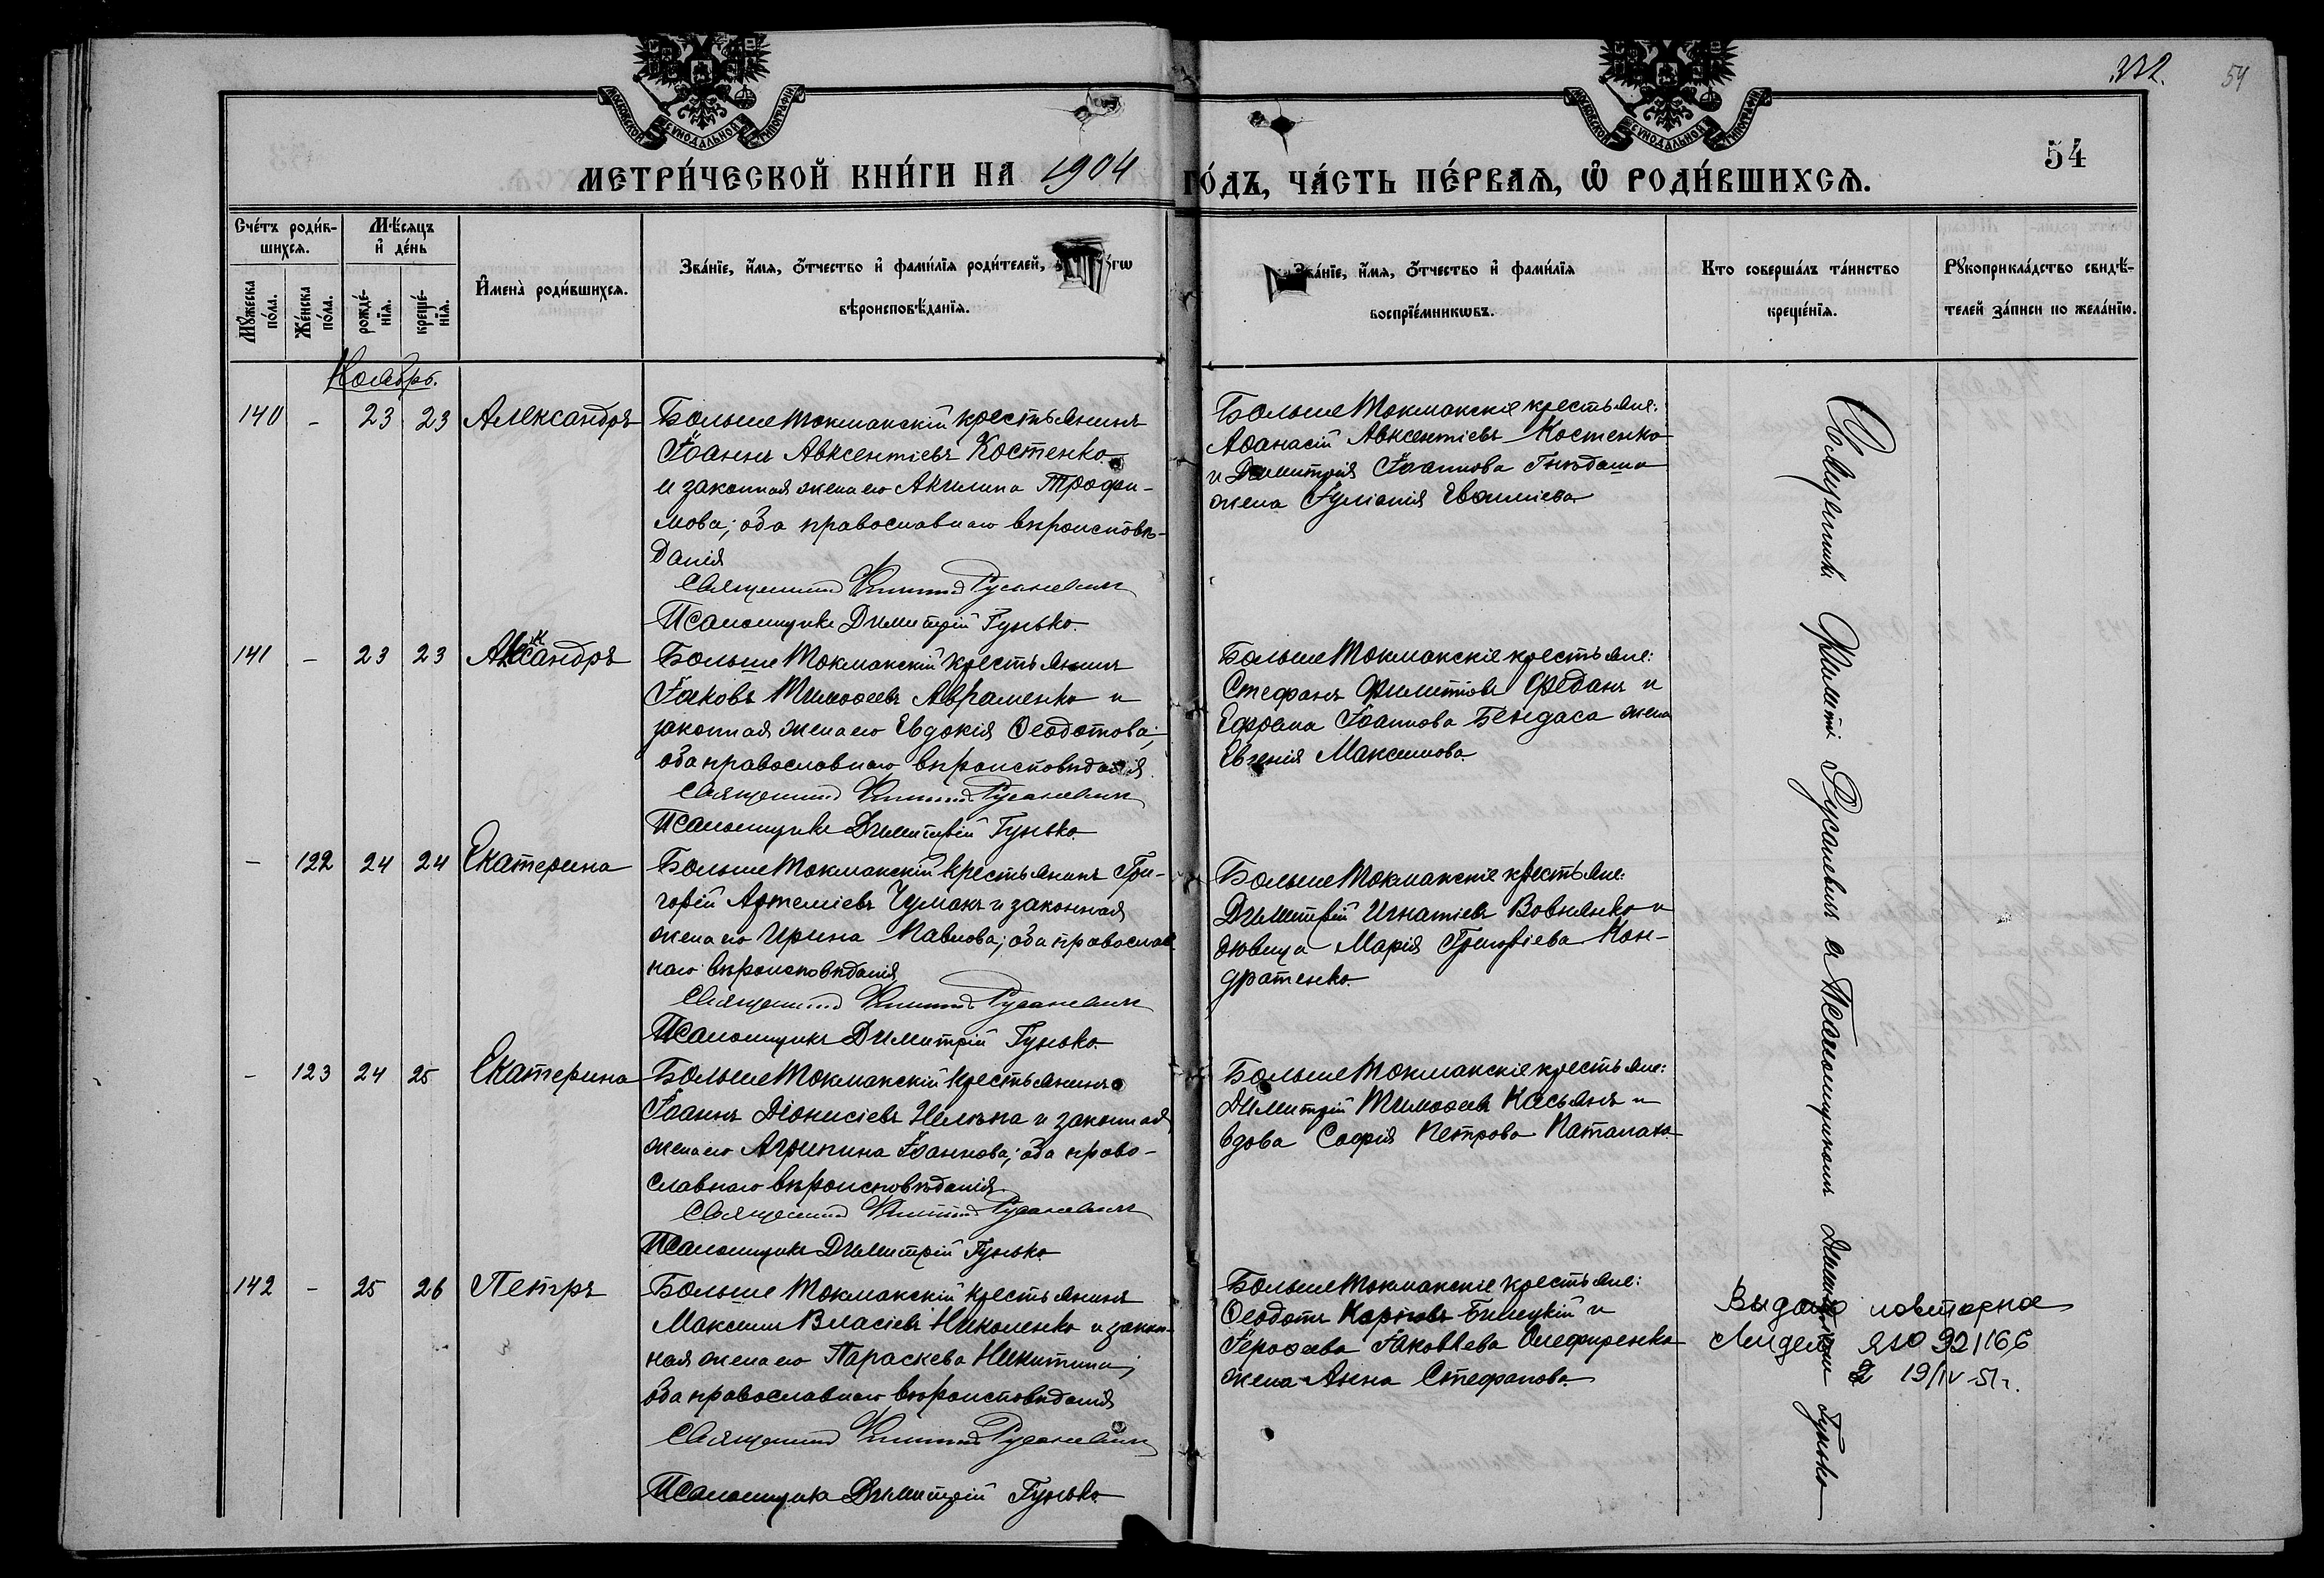 332.
54
54
МОСКОВСКОЙ СѴНОДАЛЬНОЙ ТИПОГРАФІИ
МОСКОВСКОЙ СѴНОДАЛЬНОЙ ТИПОГРАФІИ
МЕТРИ́ЧЕСКОЙ КНИ́ГИ НА 1904 ГО́ДЪ, ЧА́СТЬ ПЕ́РВАѦ, Ѡ҆ РОДИ́ВШИХСѦ.
Сче́тъ роди́в-
шихсѧ.
Мѣ́сѧцъ
и҆ де́нь
Мꙋ́жеска
по́ла.
Же́нска
по́ла.
рожде́-
нїѧ.
креще́-
нїѧ.
И҆мена̀ роди́вшихсѧ.
Зва́нїе, и҆́мѧ, ѻ҆́тчество и҆ фами́лїѧ роди́телей,
вѣроисповѣ́данїѧ.
Зва́нїе, и҆́мѧ, ѻ҆́тчество и҆ фами́лїѧ
воспрїе́мникѡвъ.
Кто соверша́лъ та́инство
креще́нїѧ.
Рꙋкоприкла́дство свидѣ́-
телей за́писи по жела́нїю.
Ноябрь.
140 - 23 23 Александръ
БольшеТокмакскій крестьянинъ
Іоаннъ Авксентіевъ Костенко
и законная жена его Акилина Трофи-
мова; оба православнаго вѣроисповѣ-
данія
Священникъ Филиппъ Русаневичъ
Псаломщикъ Димитрій Гунько.
БольшеТокмакскіе крестьяне:
Аѳанасій Авксентіевъ Костенко
и Димитрія Іоаннова
жена Іуліанія Евѳиміева
141 - 23 23 Александръ
БольшеТокмакскій крестьянинъ
Іаковъ Тимоѳеевъ Авраменко и
законная жена его Евдокія Ѳеодотова;
оба православнаго вѣроисповѣданія
Священникъ Филиппъ Русаневичъ
Псаломщикъ Димитрій Гунько.
БольшеТокмакскіе крестьяне:
Стефанъ Филипповъ Феданъ и
Ефрема Іоаннова Бендаса жена
Евгенія Максимова.
- 122 24 24 Екатерина
БольшеТокмакскій крестьянинъ Гри-
горій Артеміевъ Чумакъ и законная
жена его Ирина Павлова; оба православ
наго вѣроисповѣданія
Священникъ Филиппъ Русаневичъ
Псаломщикъ Димитрій Гунько.
БольшеТокмакскіе крестьяне:
Димитрій Игнатіевъ Вовнянко и
дѣвица Марія Григоріева Кон-
дратенко.
- 123 24 25 Екатерина
БольшеТокмакскій крестьянинъ
Іоаннъ Діонисіевъ и законная
жена его Агрипина Іоаннова; оба право-
славнаго вѣроисповѣданія
Священникъ Филиппъ Русаневичъ
Псаломщикъ Димитрій Гунько
БольшеТокмакскіе крестьяне:
Димитрій Тимоѳеевъ Касьянъ и
вдова Софія Петрова Паталаха
142 - 25 26 Петръ
БольшеТокмакскій крестьянинъ
Максимъ Власіевъ Николенко и закон-
ная жена его Параскева Никитина;
оба православнаго вѣроисповѣданія
Священникъ Филиппъ Русаневичъ
Псаломщикъ Димитрій Гунько.
БольшеТокмакскіе крестьяне:
Ѳеодотъ Карповъ Билецкій и
Іероѳеева Іаковлева Олефиренка
жена Анна Стефанова.
Священникъ Филиппъ Русаневичъ съ Псаломщикомъ Димитріемъ Гунько
Выдано повторное
ЯЮ 321166
19/IV-51г.